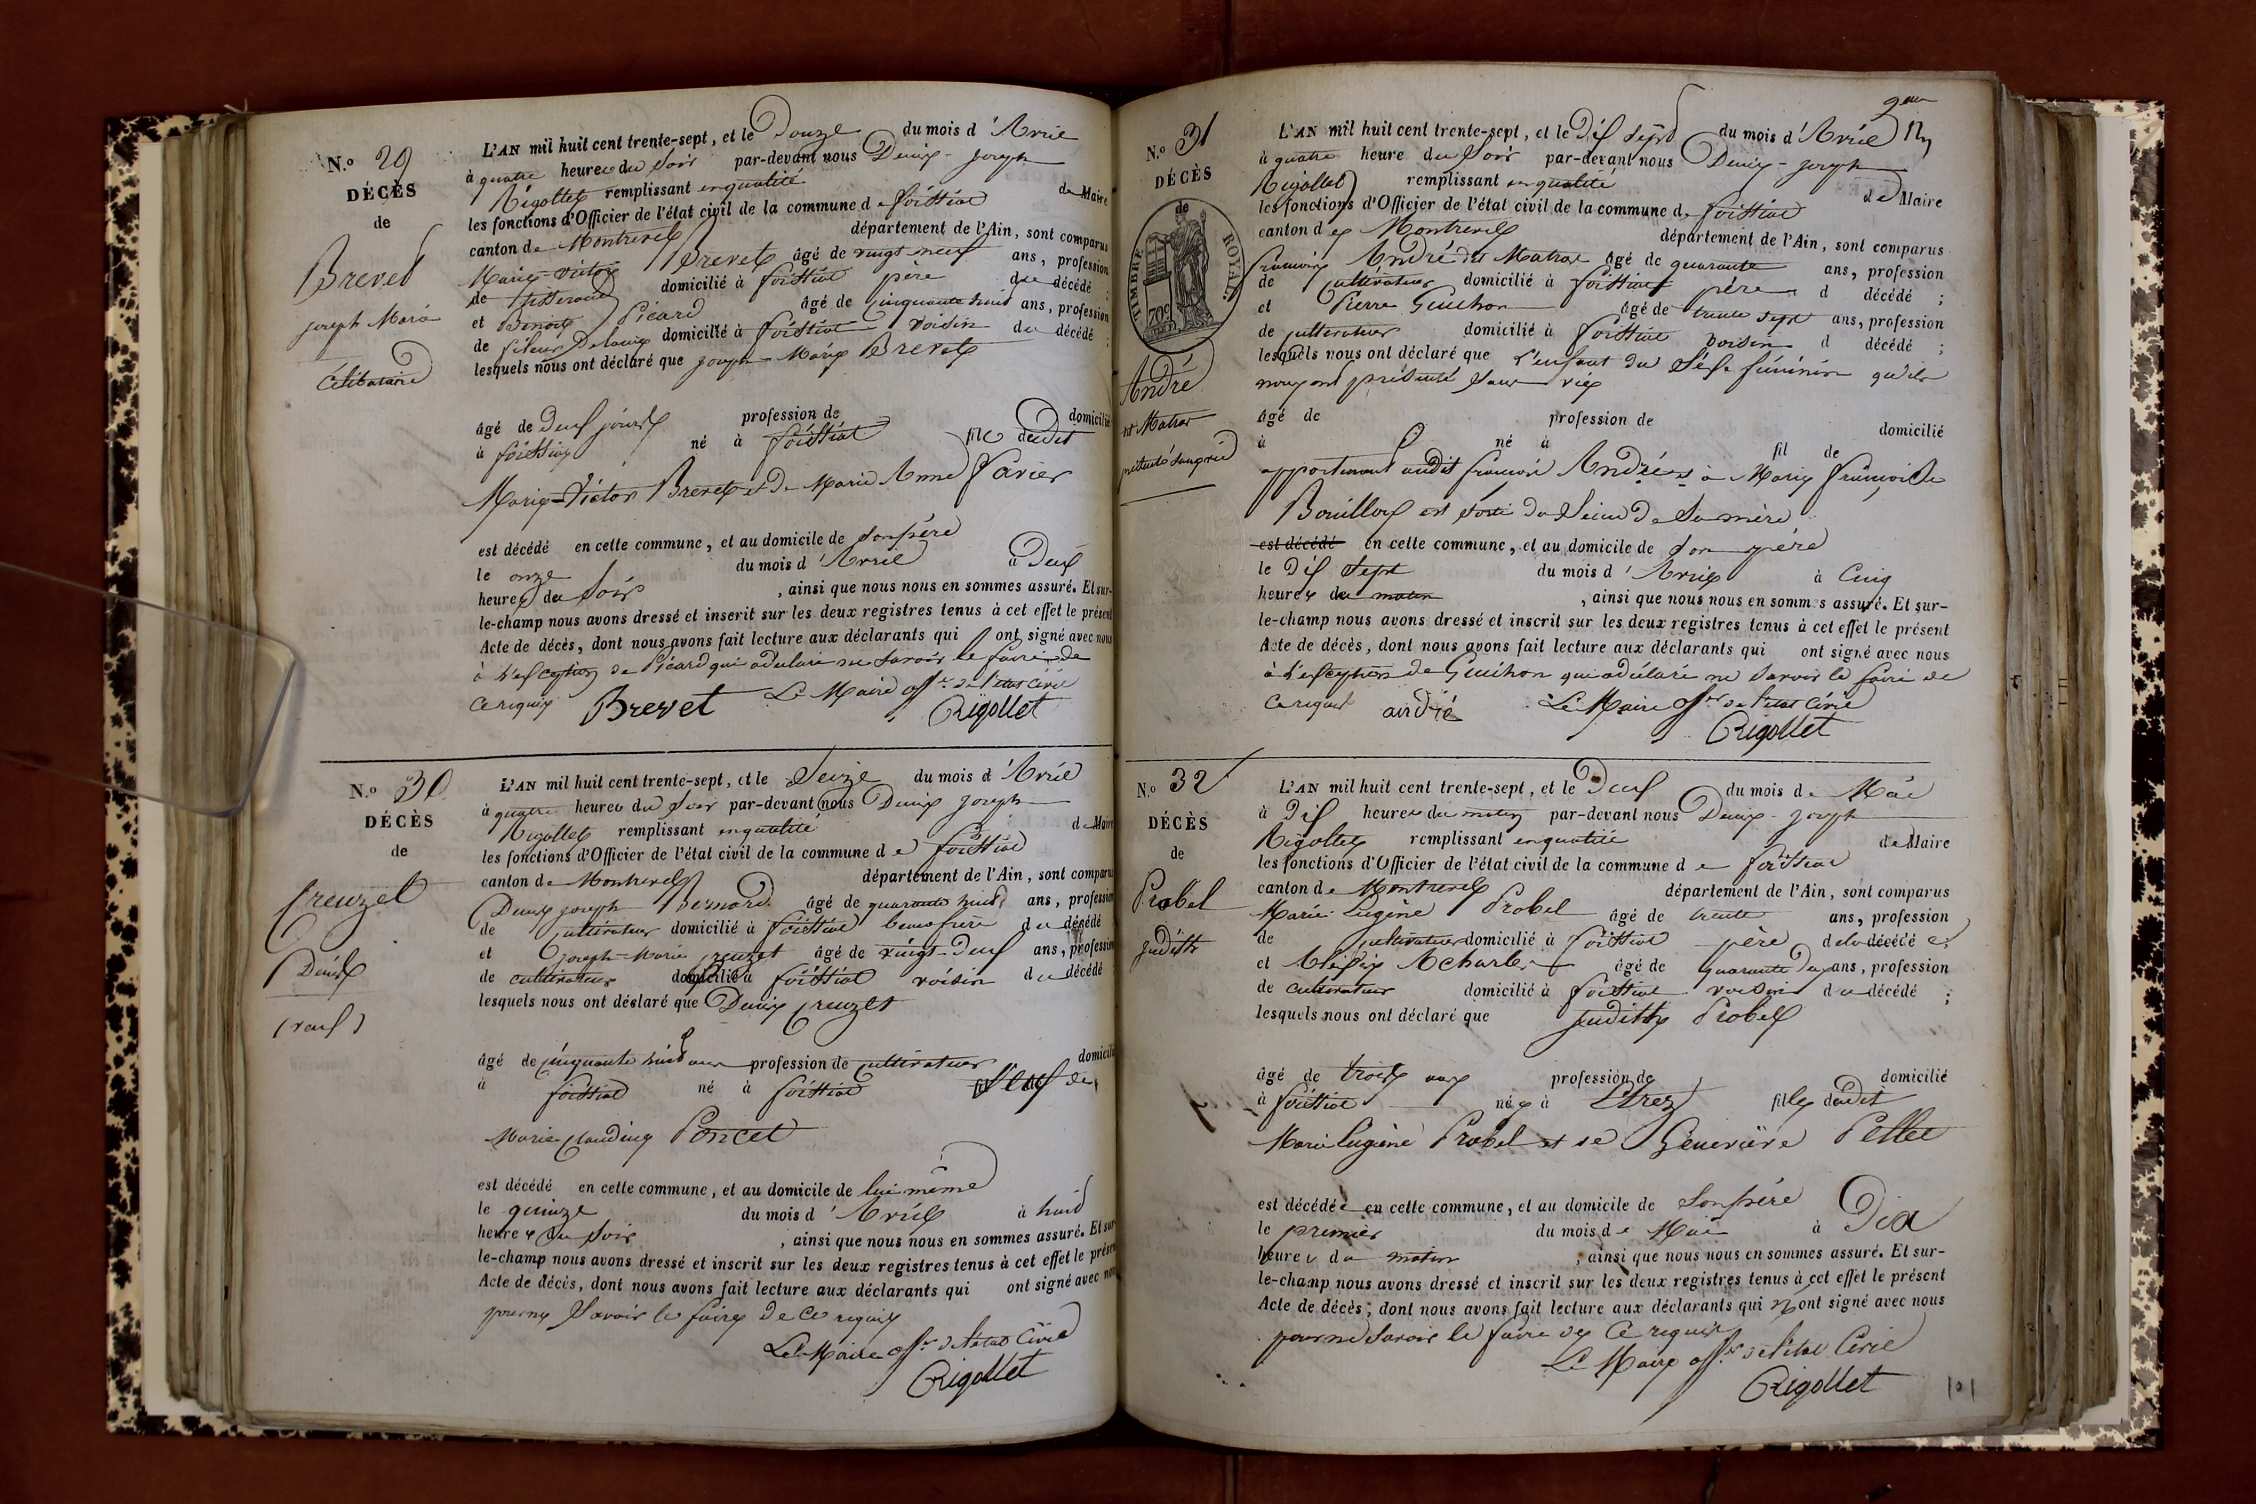 N.º 29
DÉCÈS
de
Brevet
joseph Marie
Célibataire
L'AN mil huit cent trente-sept, et le Douze du mois d'Avril
à quatre heures du Soir par-devant nous Denix-joseph
Rigollet remplissant en qualité de Maire
les fonctions d'Officier de l'état civil de la commune de foissiat
canton de Montrevel département de l'Ain, sont comparus
Marie-victor Brevet âgé de vingt neuf ans, profession
de tisserand domicilié à foissiat père du décédé ;
et Benoit Picard âgé de Cinquante huit ans, profession
de fileur De laine domicilié à foissiat voisin du décédé ;
lesquels nous ont déclaré que joseph Marie Brevet
âgé de Deux jours profession de domicilié
à foissiat né à foissiat fils dudit
Marie-Victor Brevet et de Marie Anne favier
est décédé en cette commune, et au domicile de son père
le onze du mois d'Avril à Deux
heures du Soir , ainsi que nous nous en sommes assuré. Et sur-
le-champ nous avons dressé et inscrit sur les deux registres tenus à cet effet le présent
Acte de décès, dont nous avons fait lecture aux déclarants qui ont signé avec nous
à l'exception de Picard qui a déclaré ne savoir le faire de
ce requis Brevet Le Maire off.er de l'état Civil
Rigollet
N.º 30
DÉCÈS
de
Creuzet
Denix
(veuf)
L'AN mil huit cent trente-sept, et le Seize du mois d'Avril
à quatre heures du Soir par-devant nous Denix joseph
Rigollet remplissant en qualité de Maire
les fonctions d'Officier de l'état civil de la commune de foissiat
canton de Montrevel département de l'Ain, sont comparus
Denix joseph Bernard âgé de quarante huit ans, profession
de cultivateur domicilié à foissiat beaufrere du décédé
et joseph-Marie creuzet âgé de vingt-Deux ans, profession
de cultivateur domicilié à foissiat voisin du décédé
lesquels nous ont déclaré que Denix creuzet
âgé de cinquante huit ans profession de cultivateur domicilié
à foissiat né à foissiat Veuf de
Marie claudine Poncet
est décédé en cette commune, et au domicile de lui même
le quinze du mois d'Avril à huit
heures du Soir , ainsi que nous nous en sommes assuré. Et sur-
le-champ nous avons dressé et inscrit sur les deux registres tenus à cet effet le présent
Acte de décès, dont nous avons fait lecture aux déclarants qui ont signé avec nous
pour ne Savoir le faire de ce requis
Le Maire off.er de l'état Civil
Rigollet
N.º 31
DÉCÈS
de
TIMBRE ROYAL
70c
André
dit Matrat
présenté sans vie
L'AN mil huit cent trente-sept, et le Dix Sept du mois d'Avril
à quatre heure du Soir par-devant nous Denix-joseph
Rigollet remplissant en qualité de Maire
les fonctions d'Officier de l'état civil de la commune de foissiat
canton de Montrevel département de l'Ain, sont comparus
françois André dit Matrat âgé de quarante ans, profession
de cultivateur domicilié à foissiat père d décédé ;
et Pierre Guichon âgé de trente sept ans, profession
de cultivateur domicilié à foissiat voisin d décédé ;
lesquels nous ont déclaré que l'enfant du Sexe féminin qu'ils
nous ont présenté sans vie
âgé de profession de domicilié
à né à fil de
appartenant audit françois André et à Marie françoise
Bouilloux est sorti du Sein de Sa mère
est décédé en cette commune, et au domicile de son père
le Dix Sept du mois d'Avril à Cinq
heures du matin , ainsi que nous nous en sommes assuré. Et sur-
le-champ nous avons dressé et inscrit sur les deux registres tenus à cet effet le présent
Acte de décès, dont nous avons fait lecture aux déclarants qui ont signé avec nous
à l'exception de Guichon qui a déclaré ne savoir le faire de
ce requis andré Le Maire off.er de l'état Civil
Rigollet
N.º 32
DÉCÈS
de
Probel
judith
L'AN mil huit cent trente-sept, et le Deux du mois de Mai
à Dix heures du matin par-devant nous Denix-joseph
Rigollet remplissant en qualité de Maire
les fonctions d'Officier de l'état civil de la commune de foissiat
canton de Montrevel département de l'Ain, sont comparus
Marie Eugène Probel âgé de trente ans, profession
de cultivateur domicilié à foissiat père de la décédée ;
et Acharles âgé de quarante Deux ans, profession
de cultivateur domicilié à foissiat voisin du décédé ;
lesquels nous ont déclaré que judith Probel
âgé de trois ans profession de domicilié
à foissiat née à Etrez fille dudit
Marie Eugène Probel et de Geneviève Pellet
est décédée en cette commune, et au domicile de Son père
le premier du mois de Mai à Dix
heures du matin , ainsi que nous nous en sommes assuré. Et sur-
le-champ nous avons dressé et inscrit sur les deux registres tenus à cet effet le présent
Acte de décès, dont nous avons fait lecture aux déclarants qui n'ont signé avec nous
pour ne Savoir le faire de Ce requis
Le Maire off.er de l'état Civil
Rigollet
101